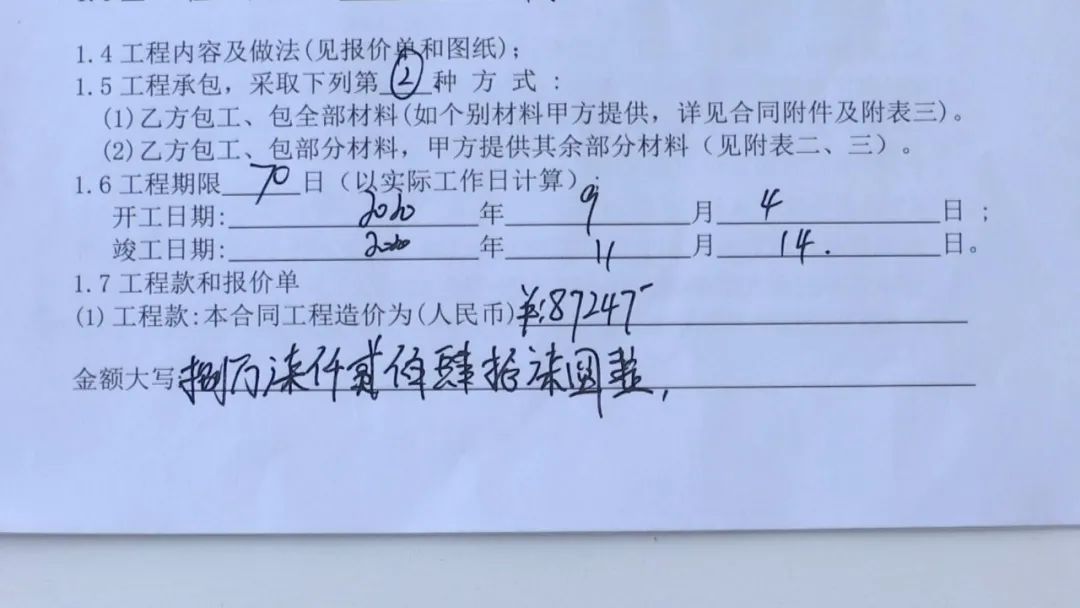 1.4 工程内容及做法(见报价单和图纸);
1.5 工程承包，采取下列第 ② 种 方 式 :
(1)乙方包工、包全部材料(如个别材料甲方提供，详见合同附件及附表三)。
(2)乙方包工、包部分材料，甲方提供其余部分材料（见附表二、三）。
1.6 工程期限 70 日（以实际工作日计算）;
开工日期: 2020 年 9 月 4 日 ;
竣工日期: 2020 年 11 月 14. 日。
1.7 工程款和报价单
(1) 工程款:本合同工程造价为(人民币) ¥:87247-
金额大写 捌万柒仟贰佰肆拾柒圆整,